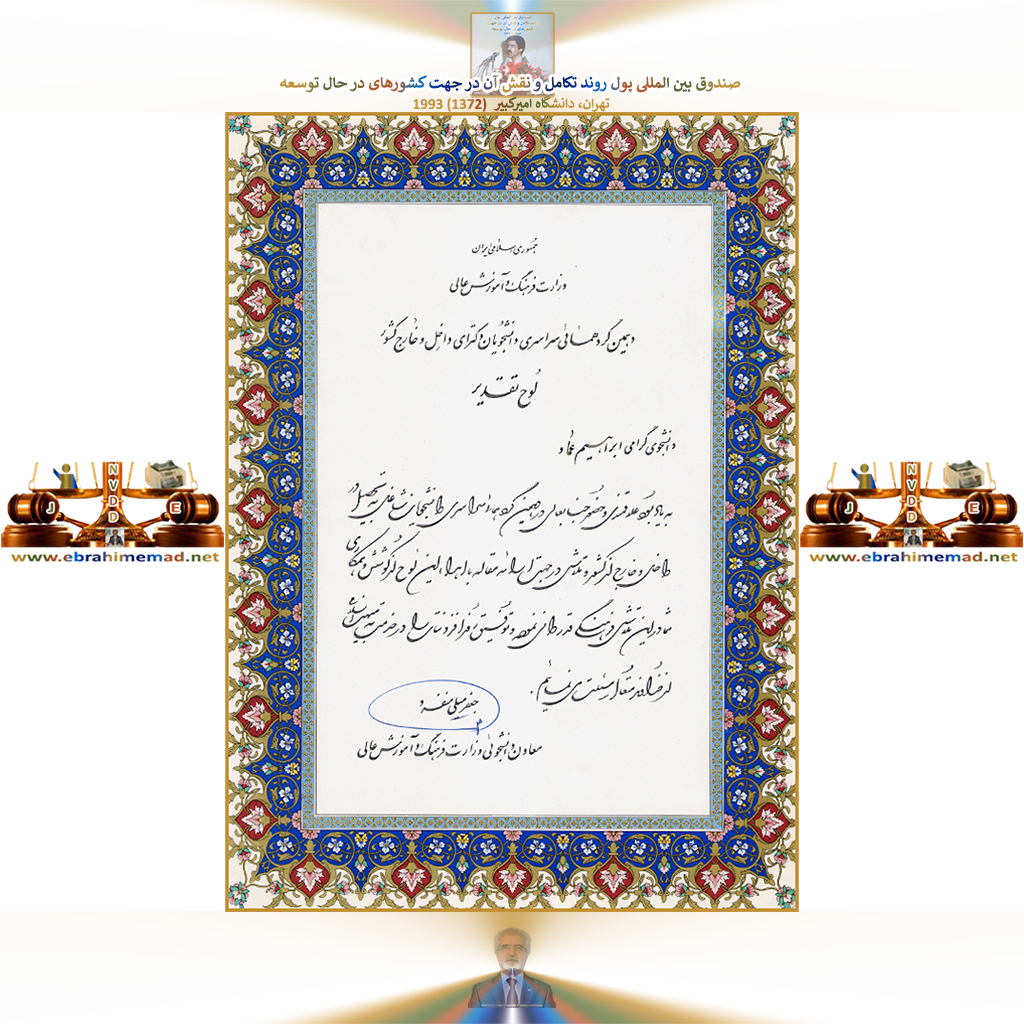 صندوق بین المللی پول روند تکامل و نقش آن در جهت کشورهای در حال توسعه
تهران، دانشگاه امیرکبیر (1372) 1993
جمهوری اسلامی ایران
وزارت فرهنگ و آموزش عالی
دهمین گردهمائی سراسری دانشجویان دکترای داخل و خارج کشور
لوح تقدیر
دانشجوی گرامی ابراهیم عماد
به پاد حضور جنابعالی در دهمین گردهمائی سراسری دانشجویان شاغل به تحصیل در
داخل و خارج از کشور و تلاش در جهت ارائه مقاله، با اهداء این لوح از کوشش و همکاری
شما در این تلاش فرهنگی قدردانی نموده و توفیق روزافزونتان را در خدمت به
از خداوند متعال مسئلت می نمائیم.
جعفر میلی منفرد
معاون دانشجوئی وزارت فرهنگ و آموزش عالی
NVDD
J E
www.ebrahimemad.net
NVDD
J E
www.ebrahimemad.net